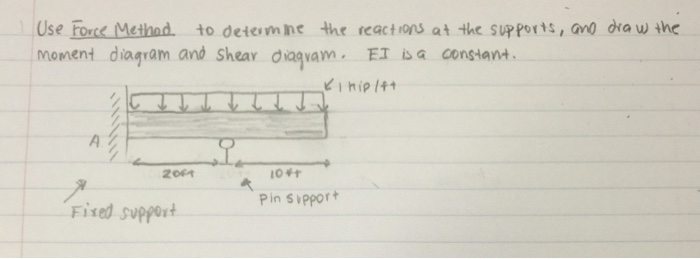 Use Force Method to determine the reactions at the supports, and draw the
moment diagram and shear diagram. EI is a constant.
1 kip/ft
A
20ft
10ft
Fixed support
Pin support